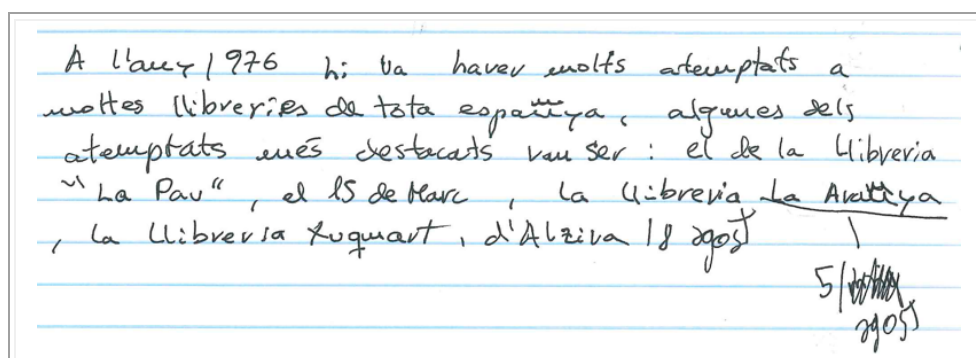 A l'any 1976 hi va haver molts atemptats a
moltes llibreries de tota espanya, algunes dels
atemptats més destacats van ser: el de la Llibreria
"La Pau", el 15 de Març, la Llibreria La Araña
, la Llibreria Xuquart, d'Alzira 18 agost
5/
agost